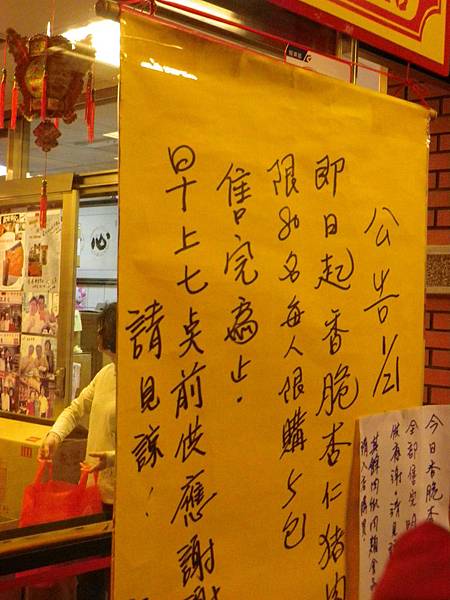 公告 1/21
即日起香脆杏仁豬肉
限80名每人限購5包
售完為止.
早上七点前供應謝謝
請見諒!
今日香脆杏
全部售完明
供應謝謝.請見諒
心